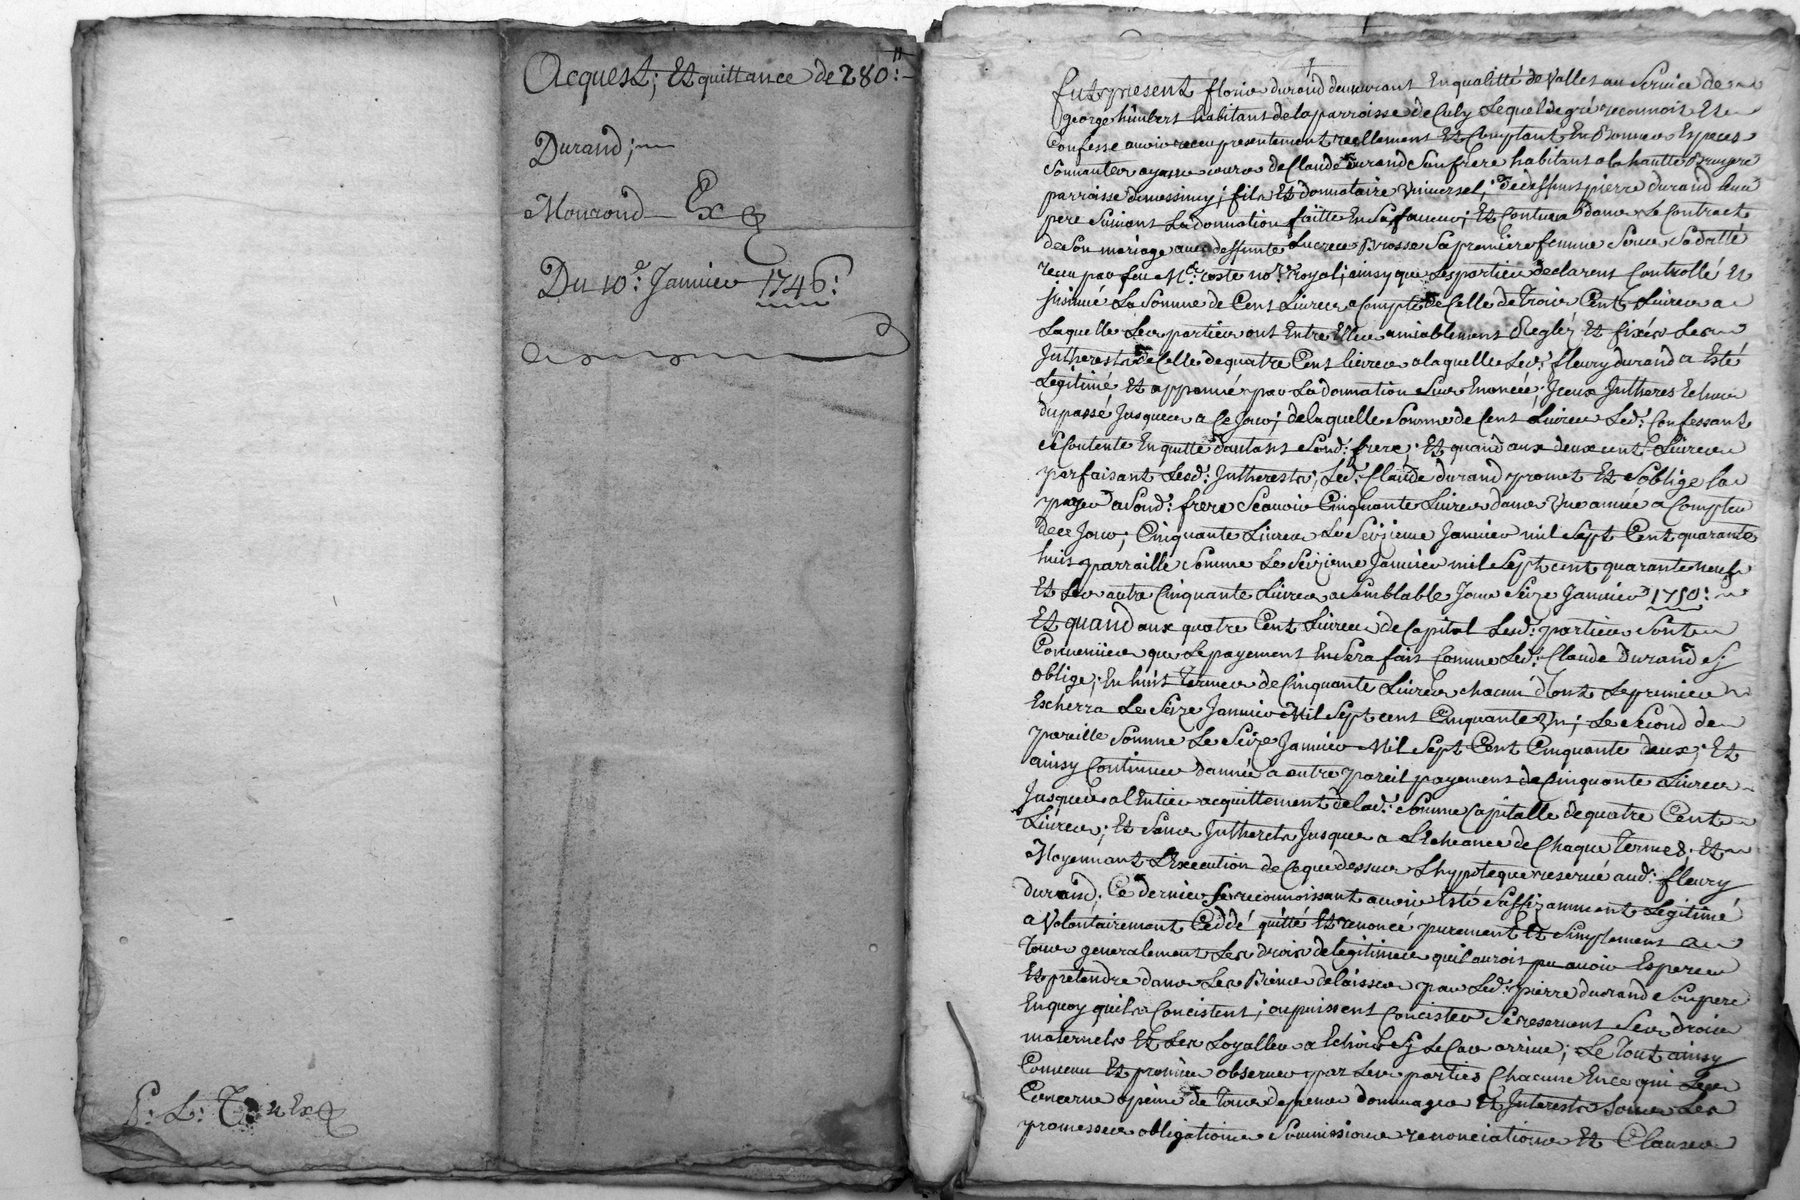 Acquest; Et quittance de 280:ᴴ
Durand;
Monrond Ex
Du 10e: Janvier 1746:
P: L: T
fut present florie durand demeurant En qualitté de Vallet au Service de
george himbert habitant de la parroisse de Culy Lequel de gré reconnois Et
Confesse avoir receu presentement reellement Et Comptant En Bonnes Espaces
Sonnantes ayant cours de Claude durand Son frere habitant a la hautte Bruyere
parroisse de messimy; fils Et donnataire Universel; de deffunt pierre durand leur
pere Suivant La donnation faitte En Sa faveur; Et Contenu dans Le Contract
de Son mariage avec deffunte Lucrece Brosse Sa premiere femme Sous Sa datte
receu par feu Me: coste nore: royal; ainsy que Les parties declarent Controllé Et
Jnsinué La Somme de Cent Livres a Compte de Celle de Trois Cent Livres a
Laquelle Les parties ont Entre Elles amiablement Reglez Et fixés Les
Jntherests de Celle de quatre Cent livres a laquelle Led: fleury durand a Esté
Legitimé Et apponné par La donnation Sus Enoncée; Jceux Jntheres Echeus
du passé Jusques a Ce Jour; de laquelle Somme de Cent Livres Led: Confessant
Se Contente En quitte d'autant Sond: frere; Et quand aux deux cent Livres
parfaisant Lesd: Jntherests; Led: Claude durand promet Et S'oblige les
payer a Sond: frere Scavoir Cinquante Livres dans Une année a Compter
de ce Jour; Cinquante Livres Le Seizieme Janvier mil Sept Cent quarante
huit parraille Somme Le Seizieme Janvier mil Sept cent quarante neuf
Et Les autre Cinquante Livres a Semblable Jour Seize Janvier 1750:
Et quand aux quatre Cent Livres de Capital Lesd: parties Sont
Convenües que Le payement En Sera fait Comme Led: Claude Durand S'y
oblige; En huit termes de Cinquante Livres chacun d'ont Le premier
Escherra Le Seize Janvier Mil Sept cent Cinquante Un; Le Second de
pareille Somme Le Seize Janvier Mil Sept Cent Cinquante deux; Et
ainsy Continuer d'année a autre pareil payement de Cinquante Livres
Jusques a l'Entier acquittement de lad: Somme Capitalle de quatre Cent
Livres; Et Sans Jntherets Jusques a L'Echeance de Chaque Termes; Et
Moyennant L'Execution de Ce que dessus L'hypoteque reservé aud: fleury
durand; Ce dernier Se reconnoissant avoir Esté Suffizamment Legitimé
a Volontairement Ceddé quitté Et renoncé purement Et Simplement a
Tous generalement Les droits de legitime qu'il aurois pu avoir Esperer
Et pretendre dans Les Biens delaisses par Led: pierre durand Son pere
En quoy quils Concistent; ou puissent Concister Se reservent Ses droits
maternels Et Les Loyalles a Echoir Sy Le Cas arrive; Le Tout ainsy
Convenu Et promis observer par Les parties Chacune En ce qui Les
Concerne a peine de Tous depens dommages Et Jnterests Sous Les
promesses obligations Soumissions renonciations Et Clauses